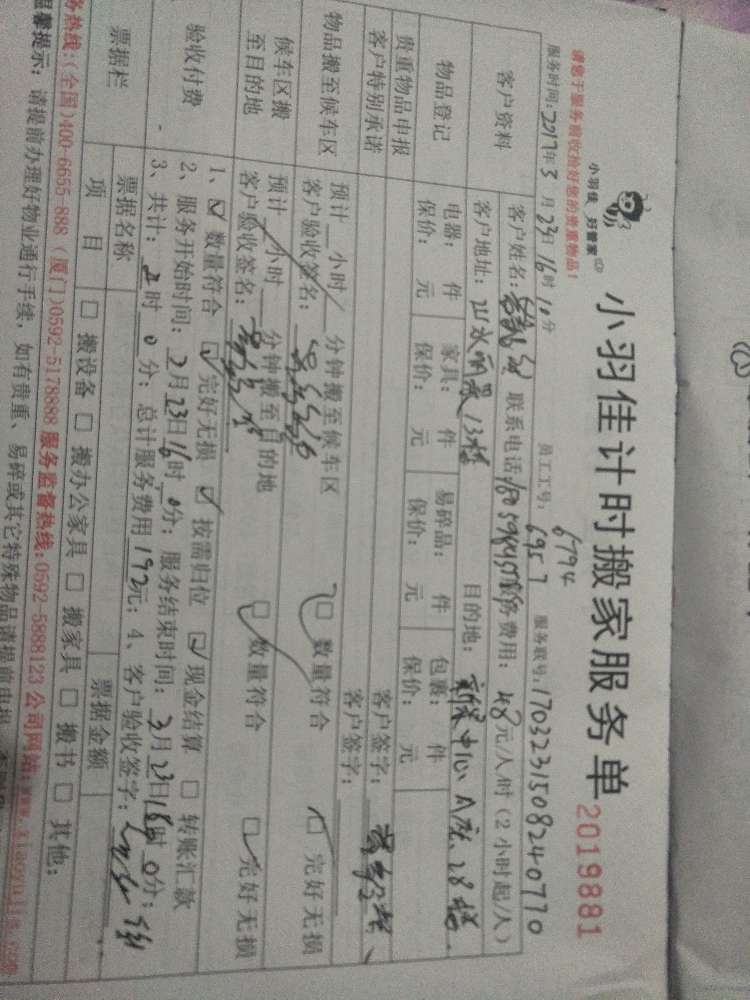 小羽佳 好管家
小羽佳计时搬家服务单 2019881
请您于服务前收拾好您的贵重物品！
服务时间：2017年3月23日16时10分 员工工号： 6794 6957 服务联号：1703231508240770
客户资料
客户姓名： 联系电话 服务费用：48元/人/时（2小时起/人）
客户地址： 13楼 目的地： 中心、A座、28楼
物品登记
电器： 件 家具： 件 易碎品： 件 包裹： 件
保价： 元 保价： 元 保价： 元 保价： 元
贵重物品申报
客户特别承诺
客户签字：
客户签字：
物品搬至候车区
预计 小时 分钟搬至候车区 数量符合 完好无损
客户验收签名：
候车区搬
至目的地
预计 小时 分钟搬至目的地 数量符合 完好无损
客户验收签名：
验收付费
1、 数量符合 完好无损 按需归位 现金结算 转账汇款
2、服务开始时间：2月23日16时0分；服务结束时间：3月23日18时0分；
3、共计：2时0分；总计服务费用192元；4、客户验收签字：
票据栏
票据名称 票据金额
项 目 搬设备 搬办公家具 搬家具 搬书 其他：
务热线：（全国）400-6655-888（厦门）0592-5178888 服务监督热线：0592-5888123 公司网站：www.xiaoyujia.com
温馨提示：请提前办理好物业通行手续，如有贵重、易碎或其它特殊物品请提前申报